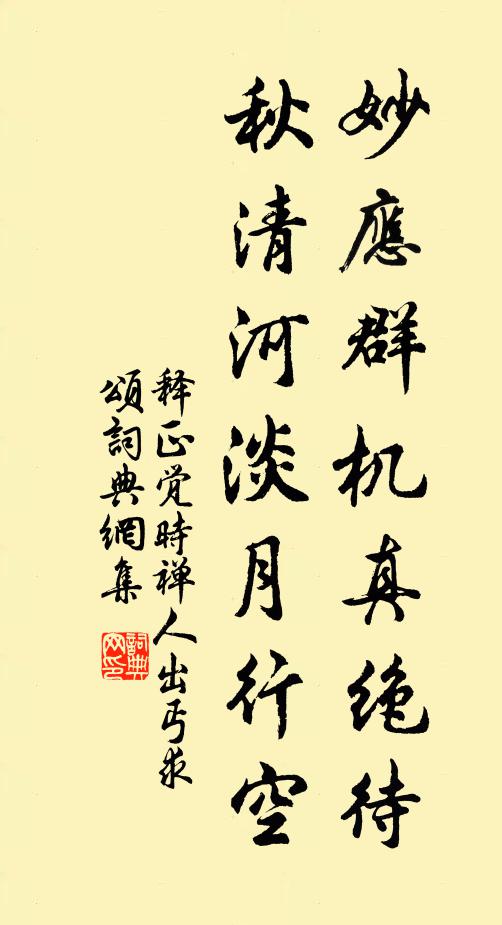 妙應群机真绝待
秋清河淡月行空
释正覺時禅人出丐求
頌詞典網集
詞典网印